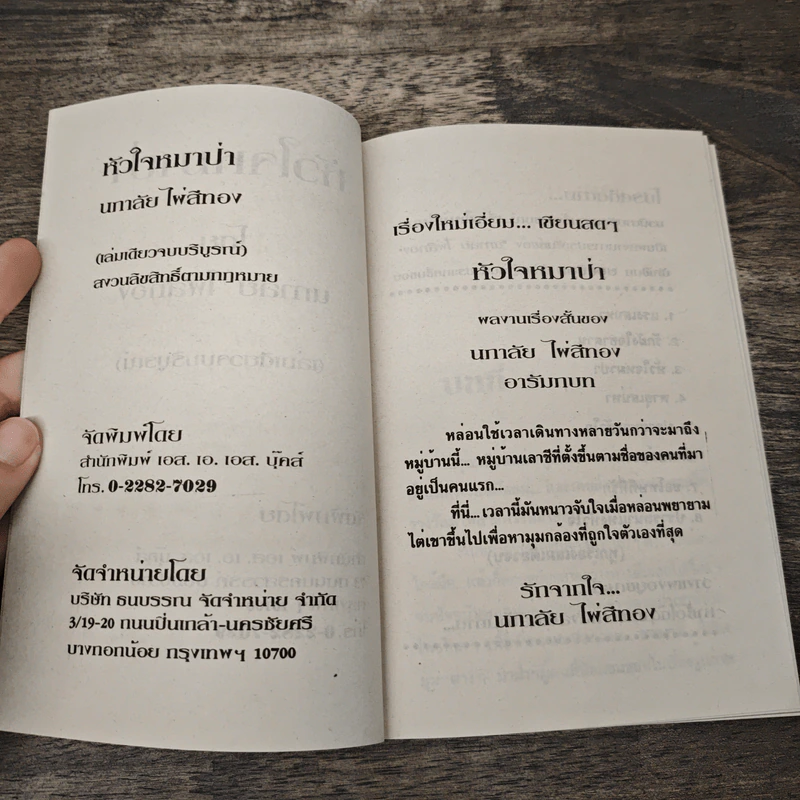 หัวใจหมาป่า
นภาลัย ไผ่สีทอง
(เล่มเดียวจบบริบูรณ์)
สงวนลิขสิทธิ์ตามกฎหมาย
จัดพิมพ์โดย
สำนักพิมพ์ เอส. เอ. เอส. บุ๊คส์
โทร. 0-2282-7029
จัดจำหน่ายโดย
บริษัท ธนบรรณ จัดจำหน่าย จำกัด
3/19-20 ถนนปิ่นเกล้า-นครชัยศรี
บางกอกน้อย กรุงเทพฯ 10700
เรื่องใหม่เอี่ยม... เขียนสดๆ
หัวใจหมาป่า
ผลงานเรื่องสั้นของ
นภาลัย ไผ่สีทอง
อารัมภบท
หล่อนใช้เวลาเดินทางหลายวันกว่าจะมาถึง
หมู่บ้านนี้... หมู่บ้านเลาซีที่ตั้งขึ้นตามชื่อของคนที่มา
อยู่เป็นคนแรก...
ที่นี่... เวลานี้มันหนาวจับใจเมื่อหล่อนพยายาม
ไต่เขาขึ้นไปเพื่อหามุมกล้องที่ถูกใจตัวเองที่สุด
รักจากใจ...
นภาลัย ไผ่สีทอง